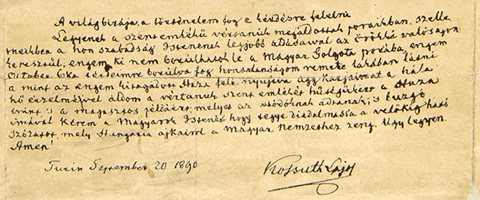 A világ birája, a történelem fog e kérdésre felelni.
Legyenek a szent emlékű vértanuk megáldottak poraikban, szelle
meikben a hon szabadság Istenének legjobb áldásaival az örökké valóságon
keresztül; engem ki nem borulhatok le a Magyar Golgota porába, engem
October 6ka térdeimre borúlva fog hontalanságom remete lakában látni
a mint az engem kitagadott Haza felé nyujtva agg karjaimat a hála
hű érzelmeivel áldom a vértanuk szent emlékét hűségükért a Haza
iránt, 's a magasztos példáért, melyet az utódoknak adtanak; 's buzgó
imával kérem a Magyarok Istenét hogy tegye diadalmassá a velőkig ható
Szózatot, mely Hungária ajkairól a Magyar nemzethez zeng. Úgy legyen.
Amen!
Turin September 20 1890
Kossuth Lajos